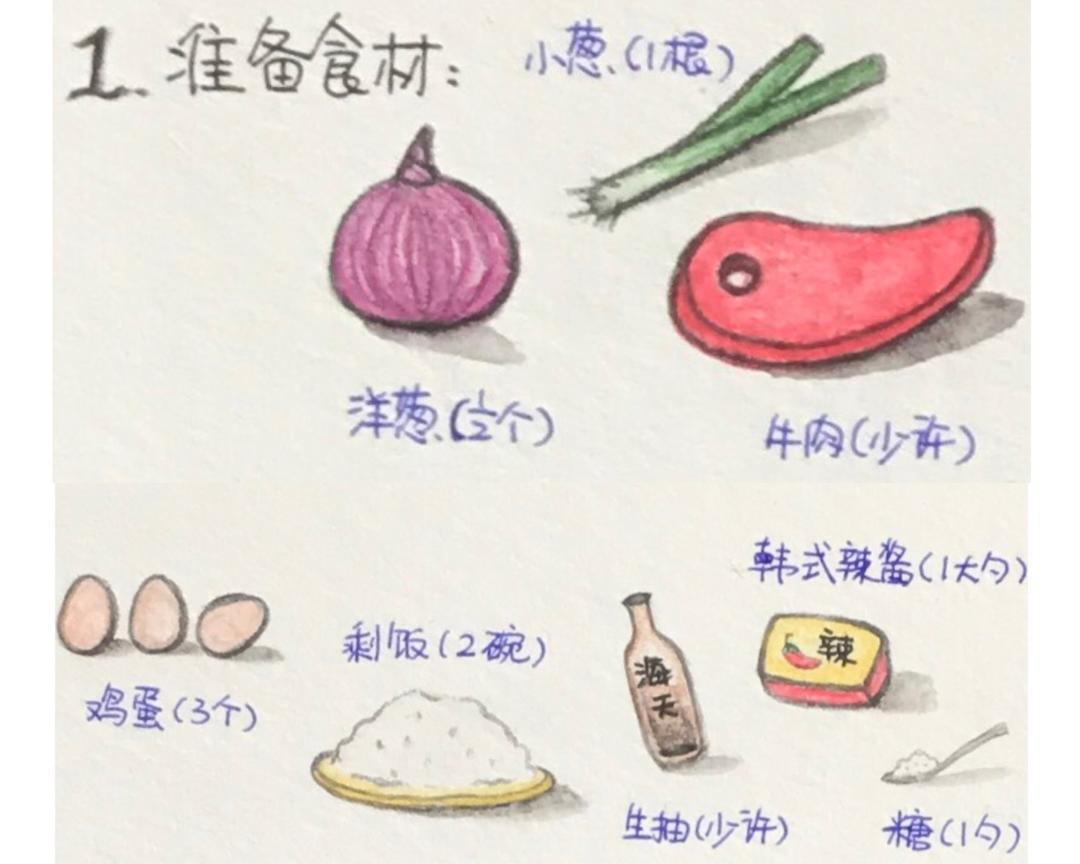 1. 准备食材:
小葱(1根)
洋葱(½个)
牛肉(少许)
韩式辣酱(1大勺)
鸡蛋(3个)
剩饭(2碗)
海天
辣
生抽(少许)
糖(1勺)